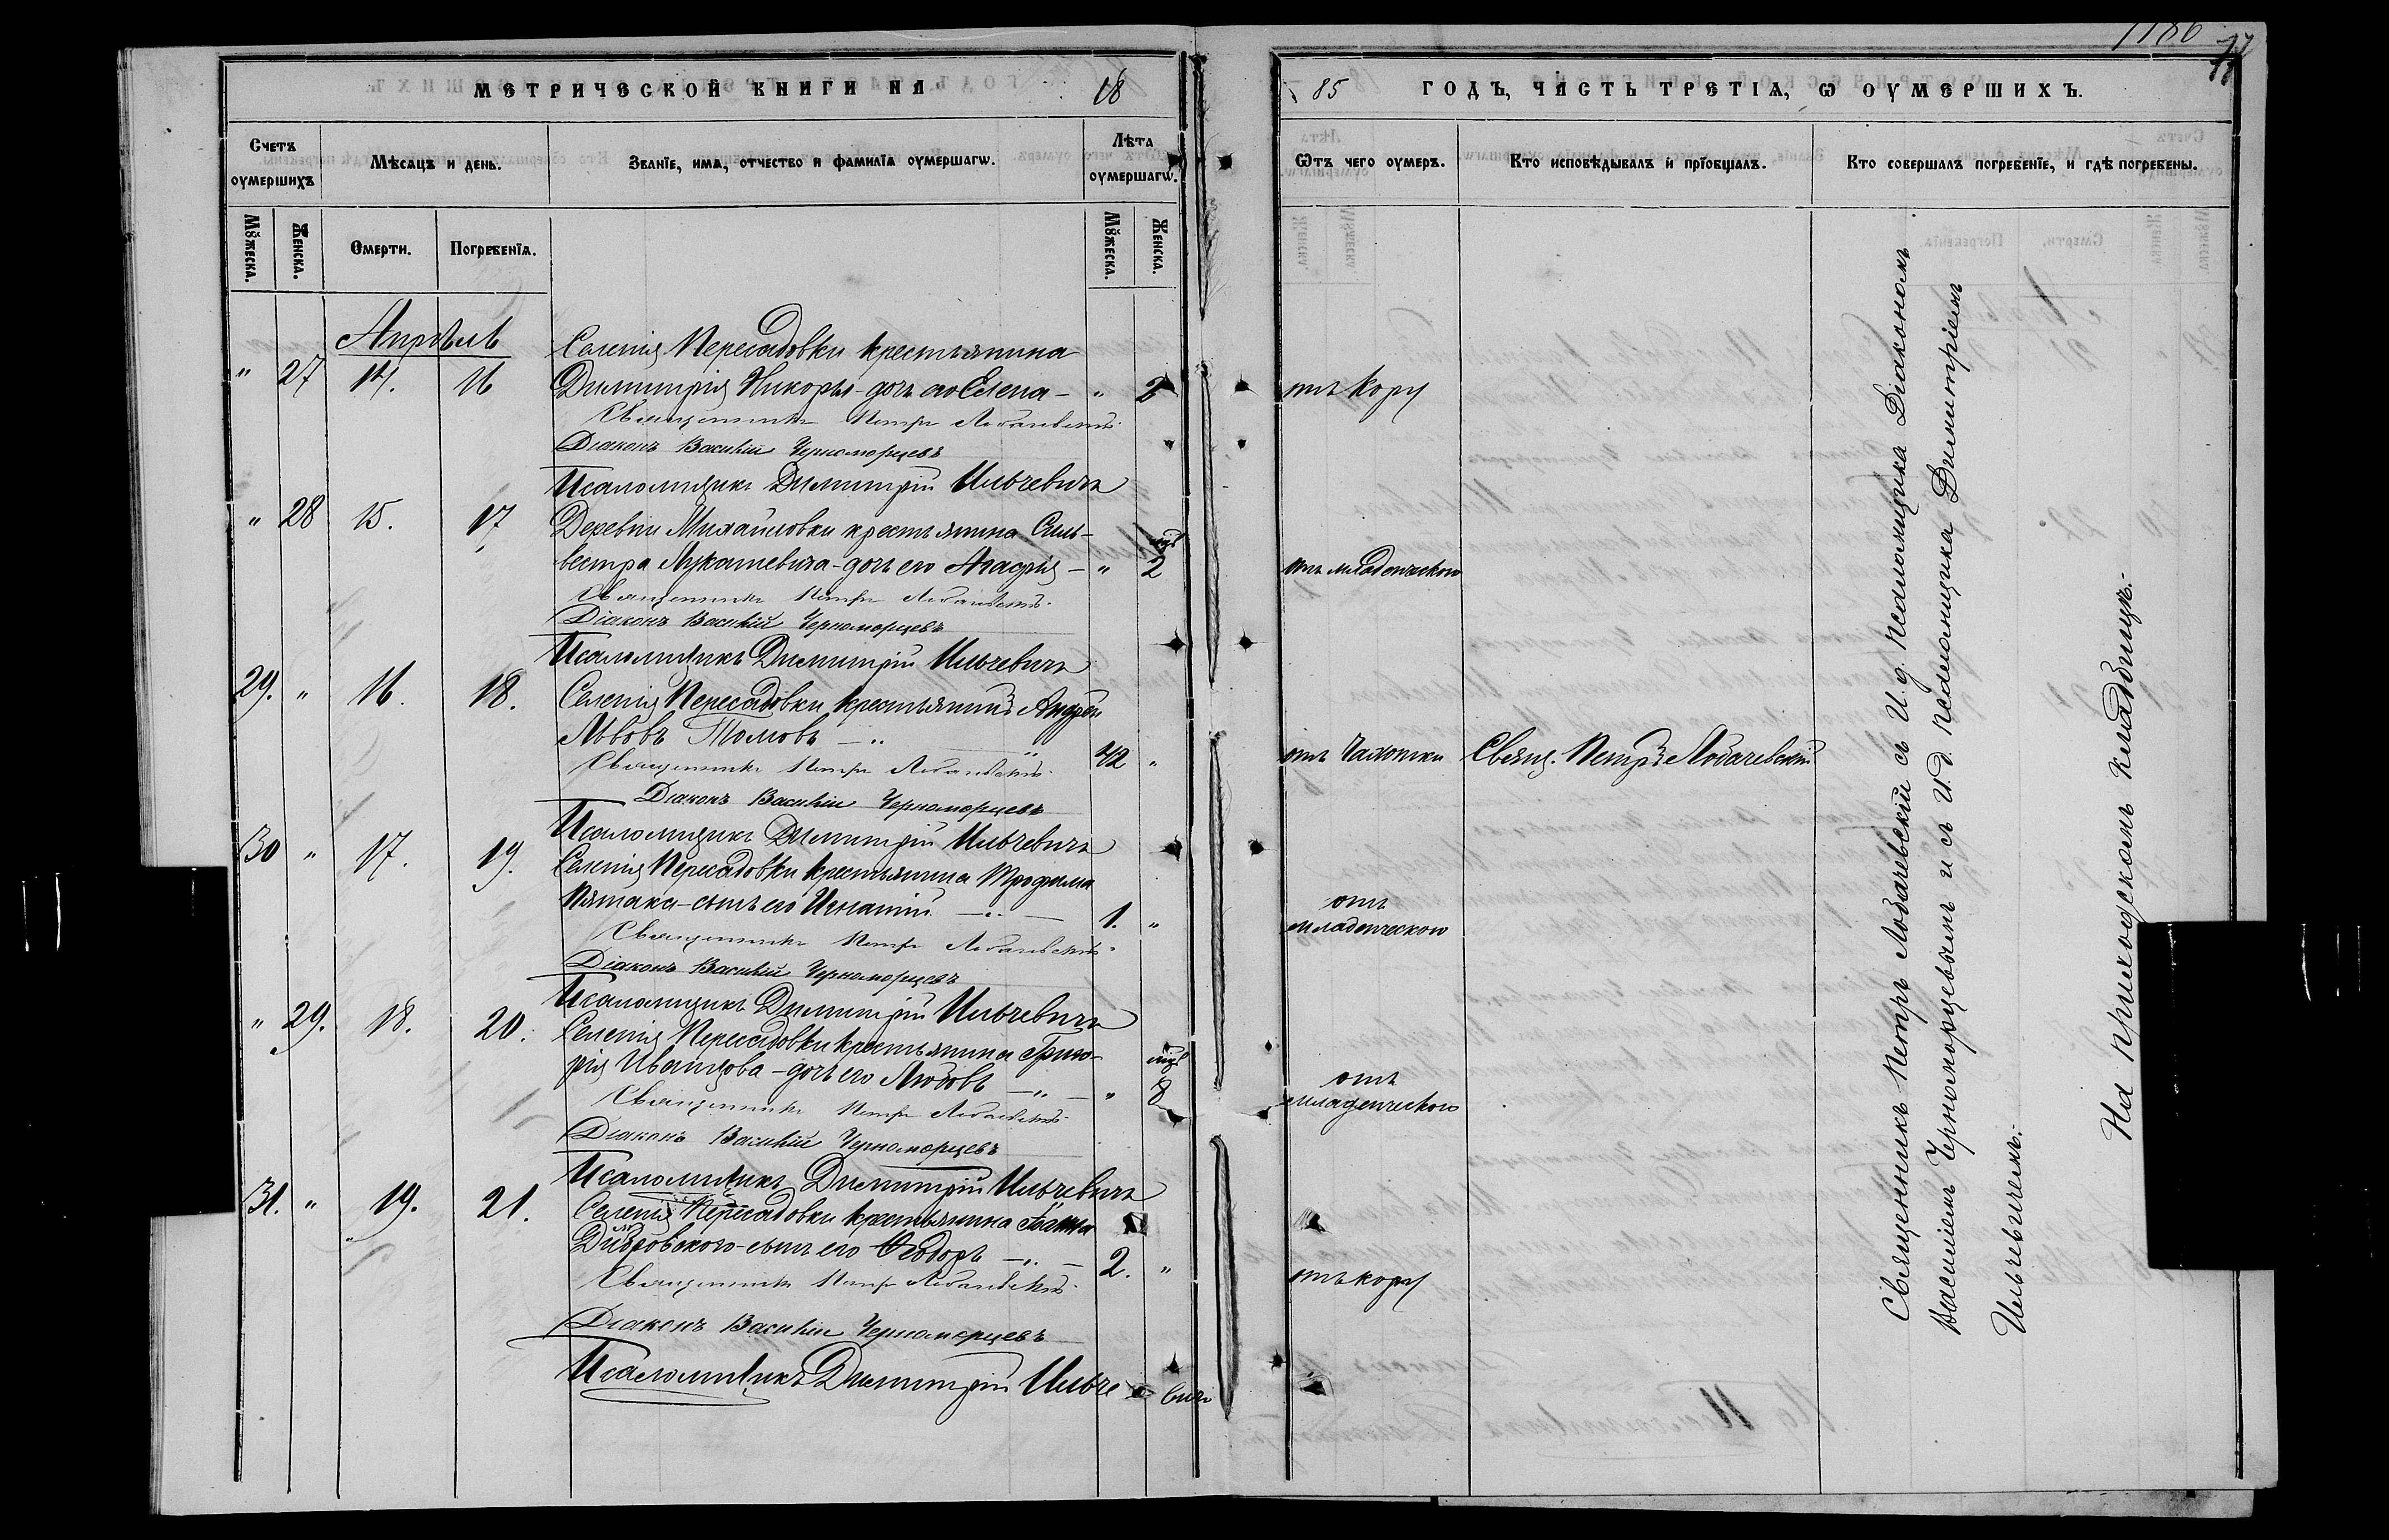 1186
77
МЕТРИЧЕСКОЙ КНИГИ НА 18
85 ГОДЪ, ЧАСТЬ ТРЕТІѦ, Ѡ ОУМЕРШИХЪ.
Счетъ оумершихъ
Мѣсяцъ и день.
Званїе, имѧ, отчество и фамилїѧ оумершагѡ.
Лѣта оумершагѡ.
Ѿтъ чего оумеръ.
Кто исповѣдывалъ и прїобщалъ.
Кто совершалъ погребенїе, и гдѣ погребены.
Мꙋжеска.
Женска.
Смерти.
Погребенїѧ.
Мꙋжеска.
Женска.
Апрѣль
Селенія Пересадовки крестьянина
" 27 14. 16 Димитрія Никоры - дочь его Елена - " 2 отъ кору
Священникъ Петръ Лобачевскій
Діаконъ Василій Черноморцевъ
Псаломщикъ Димитрій Ильчевичъ
" 28 15. 17 Деревни Михайловки крестьянина Силь-
мцъ
вестра Лукашевича - дочь его Агафія - " 2 отъ младенческаго
Священникъ Петръ Лобачевскій
Діаконъ Василій Черноморцевъ
Псаломщикъ Димитрій Ильчевичъ
29. " 16. 18. Селенія Пересадовки крестьянинъ Андрей
Львовъ Томовъ - " 42 " отъ чахотки Свящ. Петръ Лобачевскій
Священникъ Петръ Лобачевскій
Діаконъ Василій Черноморцевъ
Псаломщикъ Димитрій Ильчевичъ
30 " 17. 19. Селенія Пересадовки крестьянина Трофима
Пятака - сынъ его Игнатій - 1. " отъ младенческаго
Священникъ Петръ Лобачевскій
Діаконъ Василій Черноморцевъ
Псаломщикъ Димитрій Ильчевичъ
" 29. 18. 20. Селенія Пересадовки крестьянина Григо-
мцъ
рія Иванцова - дочь его Любовь - " 8 отъ младенческаго
Священникъ Петръ Лобачевскій
Діаконъ Василій Черноморцевъ
Псаломщикъ Димитрій Ильчевичъ
31. " 19. 21. Селенія Пересадовки крестьянина
Дибровскаго - сынъ его Ѳеодоръ - 2. " отъ кору
Священникъ Петръ Лобачевскій
Діаконъ Василій Черноморцевъ
Псаломщикъ Димитрій Ильчевичъ
Священникъ Петръ Лобачевскій съ И. д. псаломщика Діакономъ
Василіемъ Черноморцевымъ и съ И. д. псаломщика Димитріемъ
Ильчевичемъ.
На приходскомъ кладбищѣ.